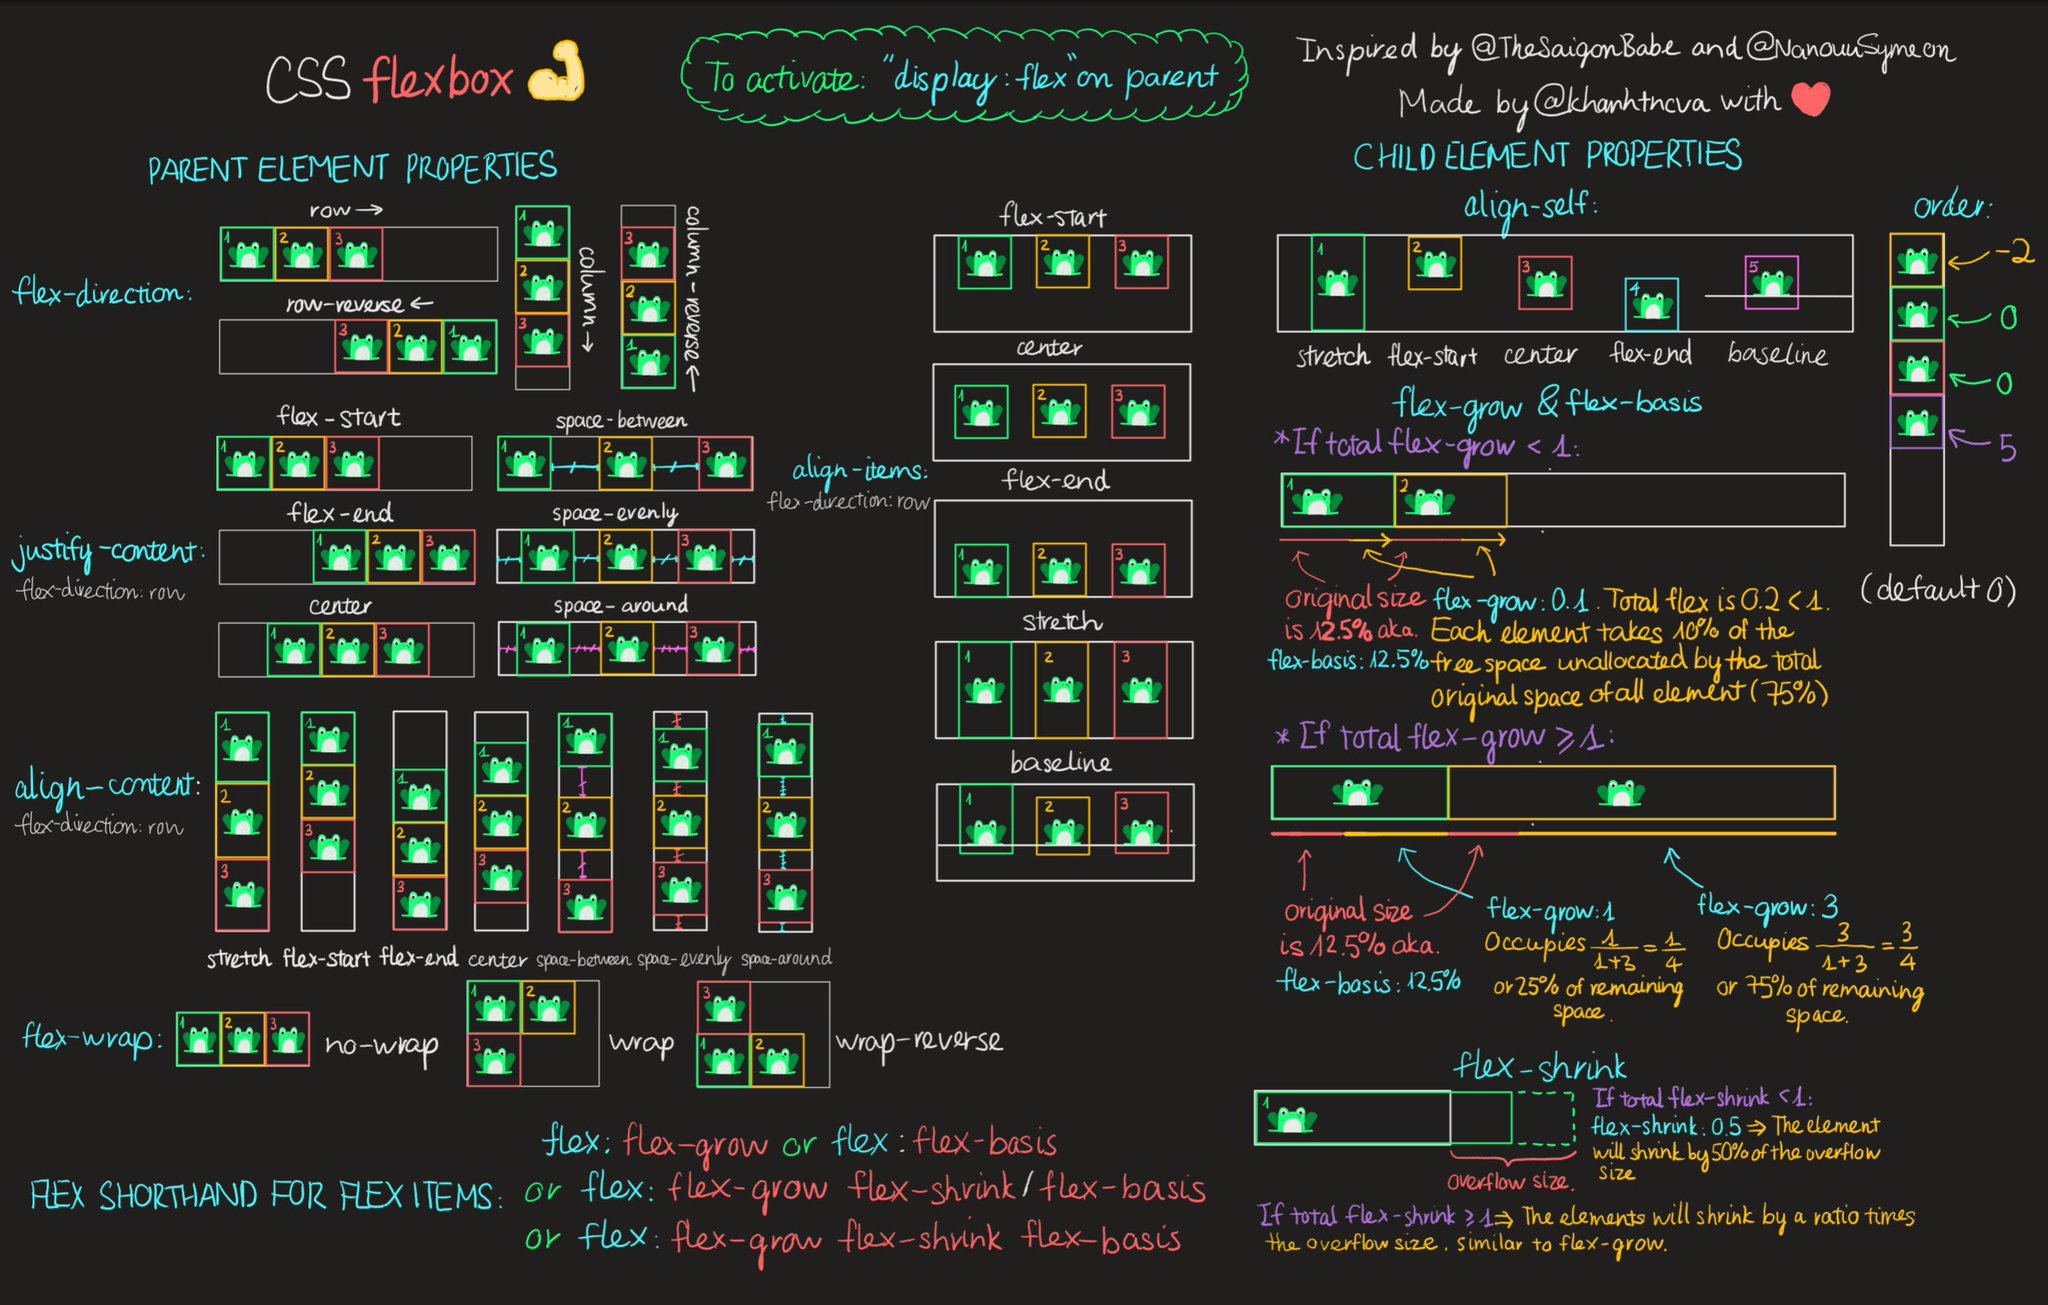 CSS flexbox
To activate: "display: flex" on parent
Inspired by @TheSaigonBabe and @NanouuSymeon
Made by @khanhtncva with
PARENT ELEMENT PROPERTIES
flex-direction:
row →
1 2 3
row-reverse ←
3 2 1
column →
1
2
3
column-reverse ←
3
2
1
justify-content:
flex-direction: row
flex-start
1 2 3
flex-end
1 2 3
center
1 2 3
space-between
1 2 3
space-evenly
1 2 3
space-around
1 2 3
align-content:
flex-direction: row
1 1 1 1 1 1 1
2 2 2 2 2 2 2
3 3 3 3 3 3 3
stretch flex-start flex-end center space-between space-evenly space-around
flex-wrap:
1 2 3
no-wrap
1 2
3
wrap
3
1 2
wrap-reverse
align-items:
flex-direction: row
flex-start
1 2 3
center
1 2 3
flex-end
1 2 3
stretch
1 2 3
baseline
1 2 3
FLEX SHORTHAND FOR FLEX ITEMS:
flex: flex-grow or flex: flex-basis
or flex: flex-grow flex-shrink/flex-basis
or flex: flex-grow flex-shrink flex-basis
CHILD ELEMENT PROPERTIES
align-self:
1 2 3 4 5
stretch flex-start center flex-end baseline
order:
-2
0
0
5
(default 0)
flex-grow & flex-basis
*If total flex-grow < 1:
1 2
original size
is 12.5% aka.
flex-basis: 12.5%
flex-grow: 0.1. Total flex is 0.2 < 1.
Each element takes 10% of the
free space unallocated by the total
original space of all element (75%)
* If total flex-grow ⩾ 1:
original size
is 12.5% aka.
flex-basis: 12.5%
flex-grow: 1
Occupies 1/1+3 = 1/4
or 25% of remaining
space.
flex-grow: 3
Occupies 3/1+3 = 3/4
or 75% of remaining
space.
flex-shrink
1
overflow size.
If total flex-shrink < 1:
flex-shrink: 0.5 ⇒ The element
will shrink by 50% of the overflow
size
If total flex-shrink ⩾ 1 ⇒ The elements will shrink by a ratio times
the overflow size. similar to flex-grow.